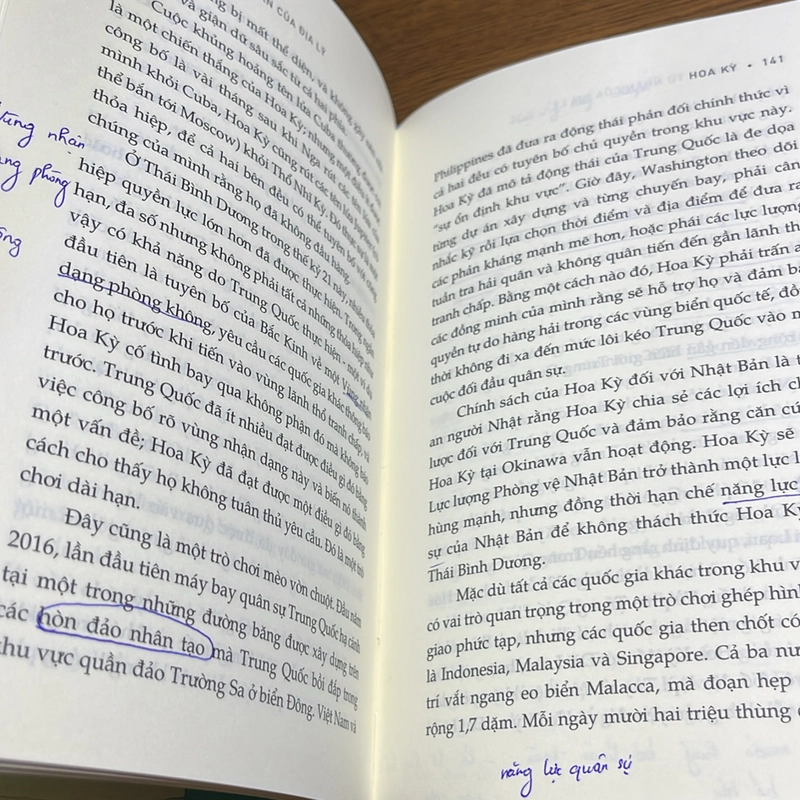 ỦA ĐỊA LÝ
ng bị mất thể diện, và không gây
và giận dữ sâu sắc từ cả hai phía.
Cuộc khủng hoảng tên lửa Cuba thường được
là một chiến thắng của Hoa Kỳ; nhưng một điều
công bố là vài tháng sau khi Nga rút các tên lửa
mình khỏi Cuba, Hoa Kỳ cũng rút các tên lửa Jupiter
thể bắn tới Moscow) khỏi Thổ Nhĩ Kỳ. Đó thực
thỏa hiệp, để cả hai bên đều có thể tuyên bố với công
chúng của mình rằng họ đã không đầu hàng.
Ở Thái Bình Dương trong thế kỷ 21 này, nhiều thỏa
hiệp quyền lực lớn hơn đã được thực hiện. Trong ngắn
hạn, đa số nhưng không phải tất cả những thỏa hiệp như
vậy có khả năng do Trung Quốc thực hiện - một ví dụ
đầu tiên là tuyên bố của Bắc Kinh về một Vùng nhận
dạng phòng không, yêu cầu các quốc gia khác thông báo
cho họ trước khi tiến vào vùng lãnh thổ tranh chấp, và
Hoa Kỳ cố tình bay qua không phận đó mà không báo
trước. Trung Quốc đã ít nhiều đạt được điều gì đó bằng
việc công bố rõ vùng nhận dạng này và biến nó thành
một vấn đề; Hoa Kỳ đã đạt được một điều gì đó bằng
cách cho thấy họ không tuân thủ yêu cầu. Đó là một trò
chơi dài hạn.
Đây cũng là một trò chơi mèo vờn chuột. Đầu năm
2016, lần đầu tiên máy bay quân sự Trung Quốc hạ cánh
tại một trong những đường băng được xây dựng trên
các hòn đảo nhân tạo mà Trung Quốc bồi đắp trong
khu vực quần đảo Trường Sa ở biển Đông. Việt Nam và
Vùng nhận
ạng phòng
ông
HOA KỲ • 141
Philippines đã đưa ra động thái phản đối chính thức vì
cả hai đều có tuyên bố chủ quyền trong khu vực này.
Hoa Kỳ đã mô tả động thái của Trung Quốc là đe dọa
“sự ổn định khu vực”. Giờ đây, Washington theo dõi
từng dự án xây dựng và từng chuyến bay, phải cân
nhắc kỹ rồi lựa chọn thời điểm và địa điểm để đưa ra
các phản kháng mạnh mẽ hơn, hoặc phái các lực lượng
tuần tra hải quân và không quân tiến đến gần lãnh thổ
tranh chấp. Bằng một cách nào đó, Hoa Kỳ phải trấn a
các đồng minh của mình rằng sẽ hỗ trợ họ và đảm bả
quyền tự do hàng hải trong các vùng biển quốc tế, đồ
thời không đi xa đến mức lôi kéo Trung Quốc vào m
cuộc đối đầu quân sự.
Chính sách của Hoa Kỳ đối với Nhật Bản là t
an người Nhật rằng Hoa Kỳ chia sẻ các lợi ích ch
lược đối với Trung Quốc và đảm bảo rằng căn cứ
Hoa Kỳ tại Okinawa vẫn hoạt động. Hoa Kỳ sẽ
Lực lượng Phòng vệ Nhật Bản trở thành một lực l
hùng mạnh, nhưng đồng thời hạn chế năng lực
sự của Nhật Bản để không thách thức Hoa Kỳ
Thái Bình Dương.
Mặc dù tất cả các quốc gia khác trong khu v
có vai trò quan trọng trong một trò chơi ghép hình
giao phức tạp, nhưng các quốc gia then chốt có
là Indonesia, Malaysia và Singapore. Cả ba nư
trí vắt ngang eo biển Malacca, mà đoạn hẹp
rộng 1,7 dặm. Mỗi ngày mười hai triệu thùng
năng lực quân sự